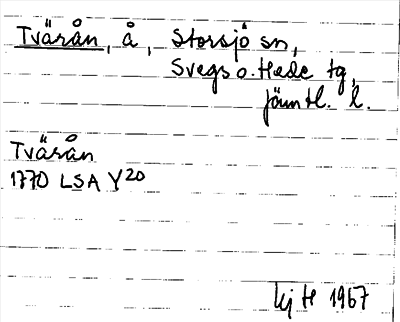 Tvärån, å, Storsjö sn,
Svegs o. Hede tg,
Jämtl. l.
Tvärån
1770 LSA Y20
H 1967